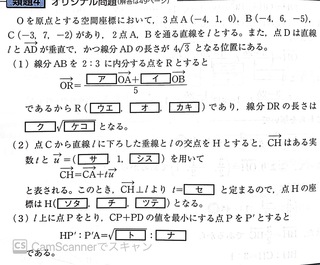 類題4 オリジナル問題 (解答は49ページ)
Oを原点とする空間座標において，3点A(−4, 1, 0)，B(−4, 6, −5)，
C(−3, 7, −2)があり，2点A，Bを通る直線をlとする。また，点Dは直線
lとADが垂直で，かつ線分ADの長さが4√3となる位置にある。
(1) 線分ABを2：3に内分する点をRとすると
OR＝(ア OA＋イ OB)/5
であるからR(ウエ，オ，カキ)であり，線分DRの長さは
ク√ケコ となる。
(2) 点Cから直線lに下ろした垂線とlの交点をHとすると，CHはある実
数tとu＝(サ，1，シス)を用いて
CH＝CA＋tu
と表される。このとき，CH⊥lよりt＝セと定まるので，点Hの座
標はH(ソタ，チ，ツテ)となる。
(3) l上に点Pをとり，CP＋PDの値を最小にする点PをP′とすると
HP′：P′A＝√ト：ナ
である。
CS CamScannerでスキャン